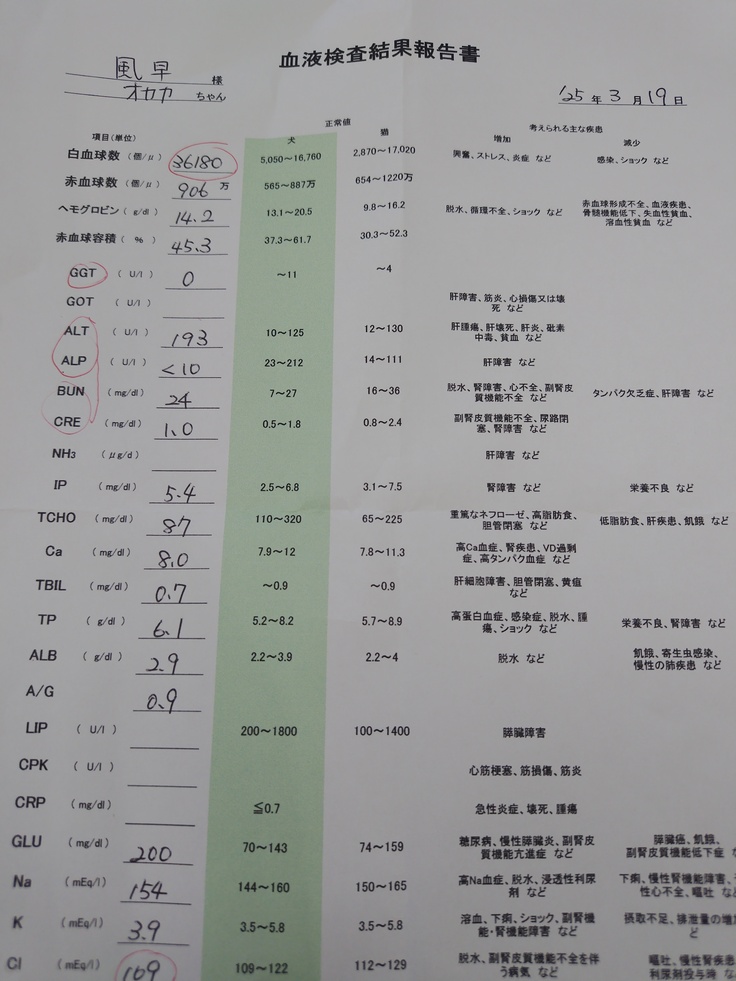 血液検査結果報告書
風早 様
オカカ ちゃん
'25 年 3 月 19 日
正常値 考えられる主な疾患
項目(単位) 犬 猫 増加 減少
白血球数 (個/μ) 36180 5,050～16,760 2,870～17,020 興奮、ストレス、炎症 など 感染、ショック など
赤血球数 (個/μ) 906 万 565～887万 654～1220万
ヘモグロビン (g/dl) 14.2 13.1～20.5 9.8～16.2 脱水、循環不全、ショック など 赤血球形成不全、血液疾患、
骨髄機能低下、失血性貧血、
溶血性貧血 など
赤血球容積 (%) 45.3 37.3～61.7 30.3～52.3
GGT (U/l) 0 ～11 ～4
GOT (U/l) 肝障害、筋炎、心損傷又は壊
死 など
ALT (U/l) 193 10～125 12～130 肝腫瘍、肝壊死、肝炎、砒素
中毒、貧血 など
ALP (U/l) <10 23～212 14～111 肝障害 など
BUN (mg/dl) 24 7～27 16～36 脱水、腎障害、心不全、副腎皮
質機能不全 など タンパク欠乏症、肝障害 など
CRE (mg/dl) 1.0 0.5～1.8 0.8～2.4 副腎皮質機能不全、尿路閉
塞、腎障害 など
NH₃ (μg/d) 肝障害 など
IP (mg/dl) 5.4 2.5～6.8 3.1～7.5 腎障害 など 栄養不良 など
TCHO (mg/dl) 87 110～320 65～225 重篤なネフローゼ、高脂肪食、
胆管閉塞 など 低脂肪食、肝疾患、飢餓 など
Ca (mg/dl) 8.0 7.9～12 7.8～11.3 高Ca血症、腎疾患、VD過剰
症、高タンパク血症 など
TBIL (mg/dl) 0.7 ～0.9 ～0.9 肝細胞障害、胆管閉塞、黄疸
など
TP (g/dl) 6.1 5.2～8.2 5.7～8.9 高蛋白血症、感染症、脱水、腫
瘍、ショック など 栄養不良、腎障害 など
ALB (g/dl) 2.9 2.2～3.9 2.2～4 脱水 など 飢餓、寄生虫感染、
慢性の肺疾患 など
A/G 0.9
LIP (U/l) 200～1800 100～1400 膵臓障害
CPK (U/l) 心筋梗塞、筋損傷、筋炎
CRP (mg/dl) ≦0.7 急性炎症、壊死、腫瘍
GLU (mg/dl) 200 70～143 74～159 糖尿病、慢性膵臓炎、副腎皮
質機能亢進症 など 膵臓癌、飢餓、
副腎皮質機能低下症
Na (mEq/l) 154 144～160 150～165 高Na血症、脱水、浸透性利尿
剤 など 下痢、慢性腎機能障害、
性心不全、嘔吐
K (mEq/l) 3.9 3.5～5.8 3.5～5.8 溶血、下痢、ショック、副腎機
能・腎機能障害 など 摂取不足、排泄量の増
ど
Cl (mEq/l) 109 109～122 112～129 脱水、副腎皮質機能不全を伴
う病気 など 嘔吐、慢性腎疾患
利尿剤投与時 な